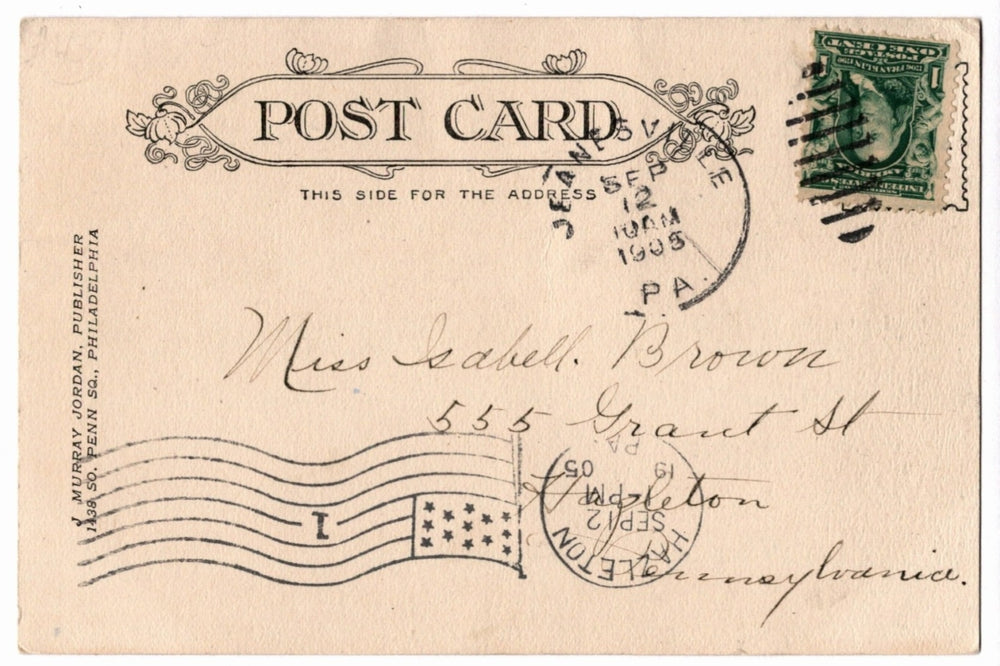 POST CARD
THIS SIDE FOR THE ADDRESS
JEANESVILLE
SEP
12
10AM
1905
PA.
POSTAGE
ONE CENT
1
FRANKLIN
UNITED STATES
AMERICA
J. MURRAY JORDAN, PUBLISHER
1438 SO. PENN SQ., PHILADELPHIA
Miss Isabell. Brown
555 Grant St
Hazleton
Pennsylvania.
1
HAZLETON
SEP 12
PM
19 05
PA.